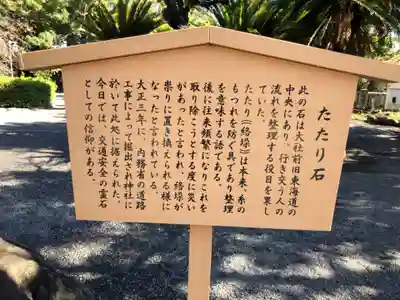 たたり石
此の石は大社前旧東海道の
中央にあり、行き交う人の
流れを整理する役目を果し
ていた。
たたり(絡垜)は本来、糸の
もつれを防ぐ具であり整理
を意味する語である。
後に往来頻繁になりこれを
取り除こうとする度に災い
があったと言われる。絡垜が
祟りに置き換えられる様に
なったと伝えている。
大正三年に、内務省の道路
工事によって掘出され神社に
於いて此処に据えられた。
今日では、交通安全の霊石
としての信仰がある。